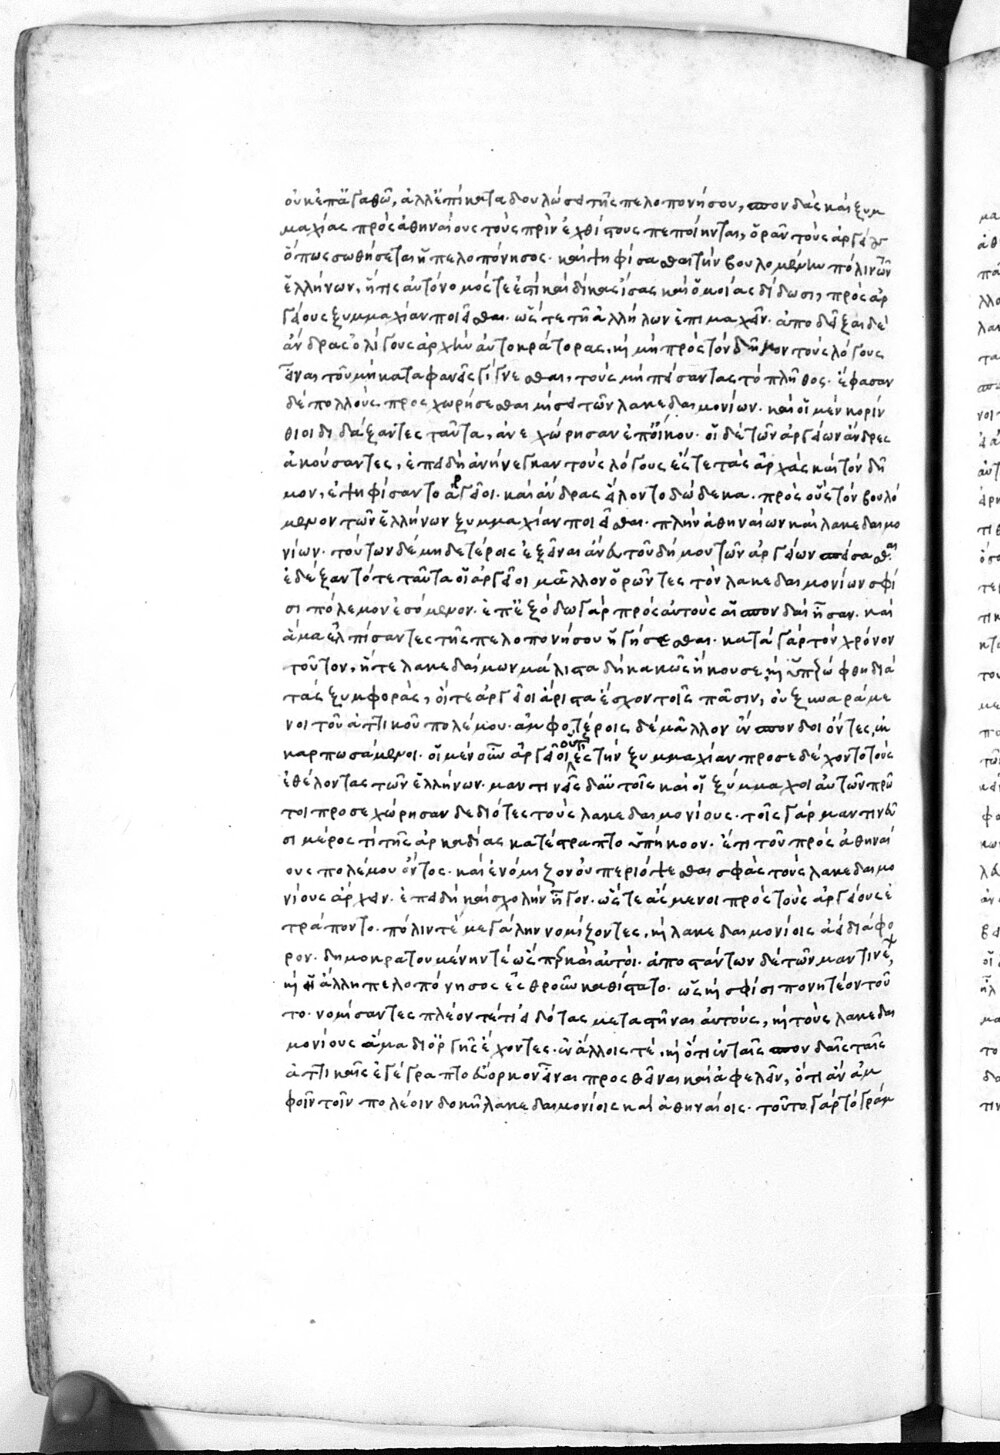 οὐκ ἐπ' ἀγαθῶ, ἀλλ' ἐπὶ καταδουλώσει τῆς πελοπονήσου, σπονδὰς καὶ ξυμ
μαχίας πρὸς ἀθηναίους τοὺς πρὶν ἐχθίστους πεποίηνται, ὁρᾶν τοὺς ἀργείους
ὅπως σωθήσεται ἡ πελοπόνησος· καὶ ψηφίσασθαι τὴν βουλομένην πόλιν τῶν
ἑλλήνων, ἥτις αὐτόνομός τε ἐστὶ καὶ δίκας ἴσας καὶ ὁμοίας δίδωσι, πρὸς ἀρ
γείους ξυμμαχίαν ποιεῖσθαι· ὥστε τῆ ἀλλήλων ἐπιμαχεῖν· ἀποδεῖξαι δὲ
ἄνδρας ὀλίγους ἀρχὴν αὐτοκράτορας, καὶ μὴ πρὸς τὸν δῆμον τοὺς λόγους
εἶναι τοῦ μὴ καταφανεῖς γίγνεσθαι, τοὺς μὴ πείσαντας τὸ πλῆθος· ἔφασαν
δὲ πολλοὺς προσχωρήσεσθαι μίσει τῶν λακεδαιμονίων· καὶ οἱ μὲν κορίν
θιοι διδάξαντες ταῦτα, ἀνεχώρησαν ἐπ' οἴκου· οἱ δὲ τῶν ἀργείων ἄνδρες
ἀκούσαντες, ἐπειδὴ ἀνήνεγκαν τοὺς λόγους ἔς τε τὰς ἀρχὰς καὶ τὸν δῆ
μον, ἐψηφίσαντο ἀργεῖοι· καὶ ἄνδρας εἵλοντο δώδεκα· πρὸς οὓς τὸν βουλό
μενον τῶν ἑλλήνων ξυμμαχίαν ποιεῖσθαι· πλὴν ἀθηναίων καὶ λακεδαιμο
νίων· τούτων δὲ μηδετέροις ἐξεῖναι ἄνευ τοῦ δήμου τῶν ἀργείων σπείσασθαι
ἐδέξαντό τε ταῦτα οἱ ἀργεῖοι μᾶλλον ὁρῶντες τὸν λακεδαιμονίων σφί
σι πόλεμον ἐσόμενον· ἐπ' ἐξόδω γὰρ πρὸς αὐτοὺς αἱ σπονδαὶ ἦσαν· καὶ
ἅμα ἐλπίσαντες τῆς πελοπονήσου ἡγήσεσθαι· κατὰ γὰρ τὸν χρόνον
τοῦτον, ἥ τε λακεδαίμων μάλιστα δὴ κακῶς ἤκουσε, καὶ ὑπερώφθη διὰ
τὰς ξυμφοράς, οἵ τε ἀργεῖοι ἄριστα ἔσχον τοῖς πᾶσιν, οὐ ξυναράμε
νοι τοῦ ἀττικοῦ πολέμου· ἀμφοτέροις δὲ μᾶλλον ἔνσπονδοι ὄντες, ἐκ
καρπωσάμενοι· οἱ μὲν οὖν ἀργεῖοι οὕτως ἐς τὴν ξυμμαχίαν προσεδέχοντο τοὺς
ἐθέλοντας τῶν ἑλλήνων· μαντινῆς δ' αὐτοῖς καὶ οἱ ξύμμαχοι αὐτῶν πρῶ
τοι προσεχώρησαν δεδιότες τοὺς λακεδαιμονίους· τοῖς γὰρ μαντινεῦ
σι μέρος τι τῆς ἀρκαδίας κατέστραπτο ὑπήκοον· ἔτι τοῦ πρὸς ἀθηναί
ους πολέμου ὄντος· καὶ ἐνόμιζον οὐ περιόψεσθαι σφᾶς τοὺς λακεδαιμο
νίους ἄρχειν· ἐπειδὴ καὶ σχολὴν ἦγον· ὥστε ἄσμενοι πρὸς τοὺς ἀργείους ἐ
τράποντο· πόλιν τὲ μεγάλην νομίζοντες, καὶ λακεδαιμονίοις ἀεὶ διάφο
ρον· δημοκρατουμένην τὲ ὥσπερ καὶ αὐτοί· ἀποστάντων δὲ τῶν μαντινέων,
καὶ ἡ ἄλλη πελοπόνησος ἐς θροῦν καθίστατο· ὡς καὶ σφίσι ποιητέον τοῦ
το· νομίσαντες πλέον τέ τι εἰδότας μεταστῆναι αὐτούς, καὶ τοὺς λακεδαι
μονίους ἅμα δι' ὀργῆς ἔχοντες· ἐν ἄλλοις τὲ, καὶ ὅτι ἐν ταῖς σπονδαῖς ταῖς
ἀττικαῖς ἐγέγραπτο εὔορκον εἶναι προσθεῖναι καὶ ἀφελεῖν, ὅτι ἂν ἀμ
φοῖν τοῖν πολέοιν δοκῆ λακεδαιμονίοις καὶ ἀθηναίοις· τοῦτο γὰρ τὸ γράμ